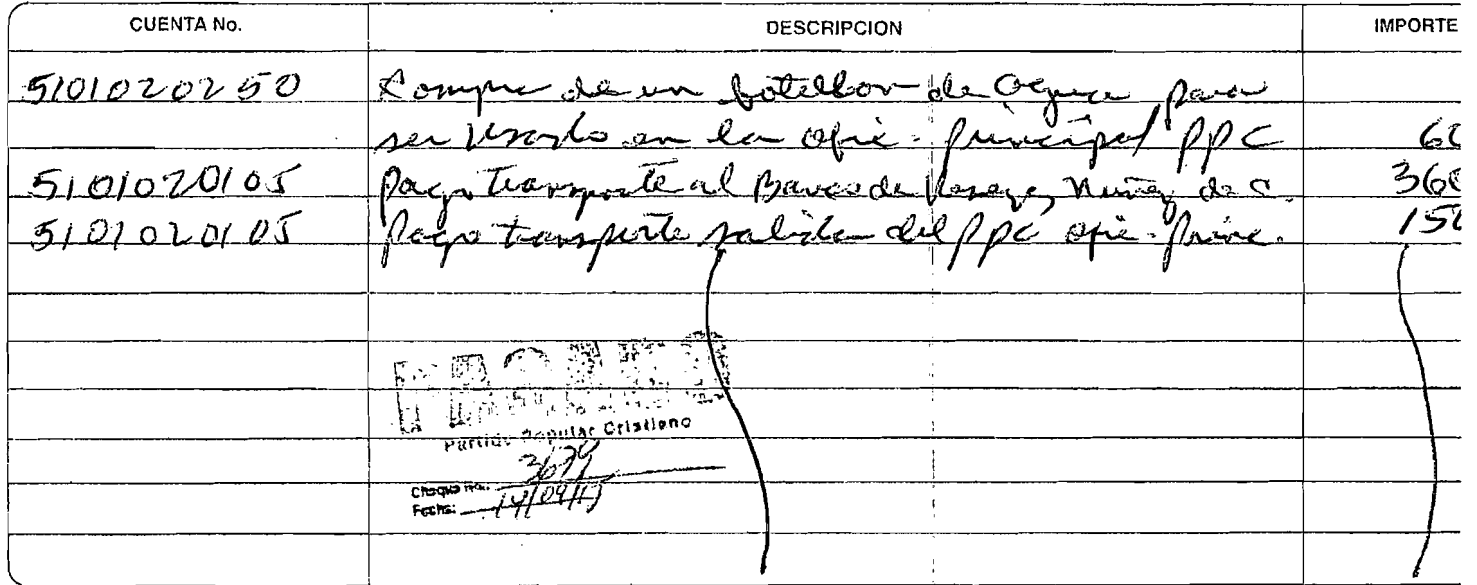 CUENTA No. DESCRIPCION IMPORTE
5101020250 Compra de un botellon de Agua para
ser Usado en la ofic. principal PPC 60
5101020105 Pago transporte al Banco de Reserva, Nuñez de C. 360
5101020105 Pago transporte salida del PPC ofic. princ. 150
Partido Popular Cristiano
3679
Cheque no.
Fecha: 14/09/17